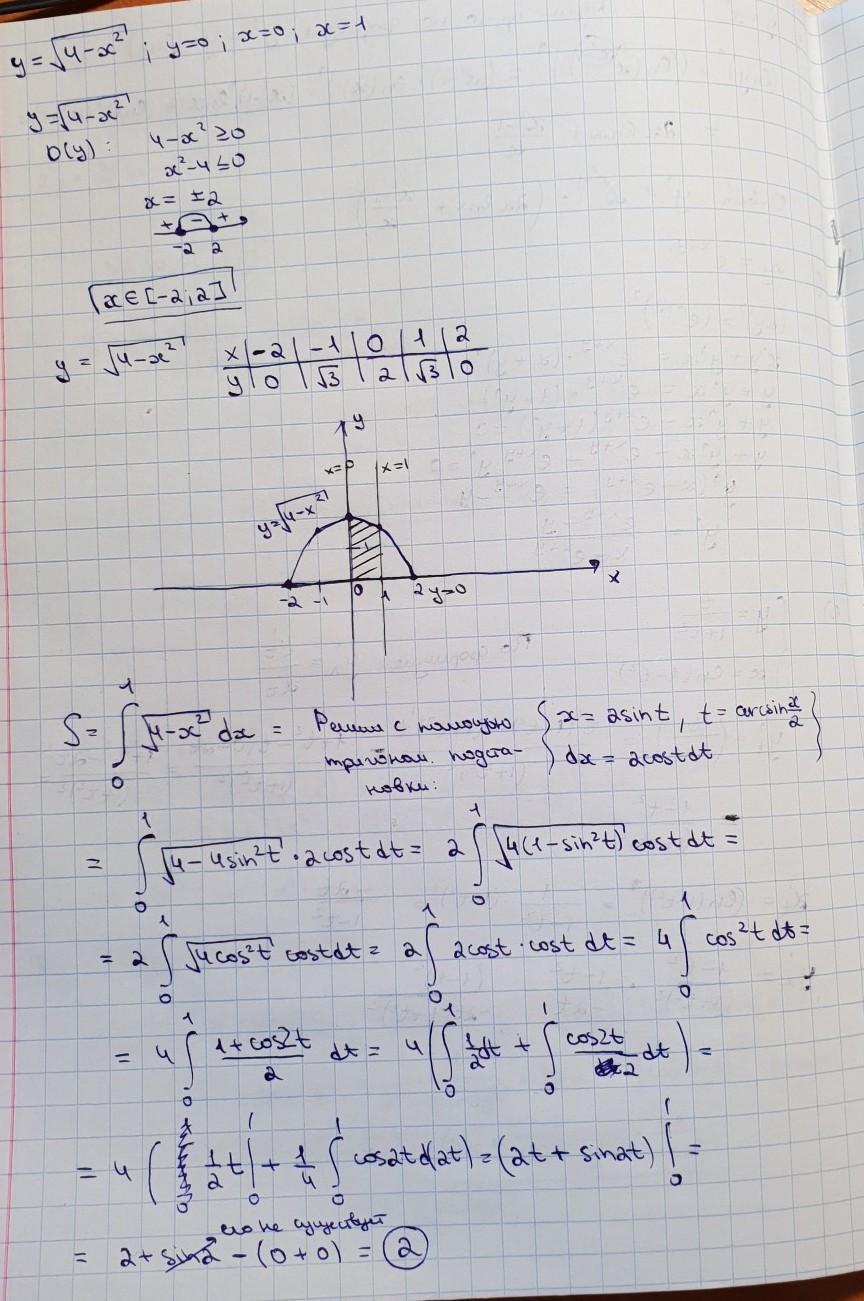 y = √(4-x²) ; y=0 ; x=0 ; x=1
y=√(4-x²)
D(y) : 4-x² ≥ 0
x²-4 ≤ 0
x = ±2
+ - +
-2 2
x ∈ [-2; 2]
y = √(4-x²)
x | -2 | -1 | 0 | 1 | 2
y | 0 | √3 | 2 | √3 | 0
y
x=0 x=1
y=√(4-x²)
1
-2 -1 0 1 2 y=0
x
S = ∫₀¹ √(4-x²) dx = Решим с помощью тригоном. подста-новки: { x = 2sint , t = arcsin x/2
dx = 2costdt }
= ∫₀¹ √(4-4sin²t) · 2cost dt = 2 ∫₀¹ √(4(1-sin²t)) cost dt =
= 2 ∫₀¹ √(4cos²t) cost dt = 2 ∫₀¹ 2cost · cost dt = 4 ∫₀¹ cos²t dt =
= 4 ∫₀¹ (1+cos2t)/2 dt = 4 ( ∫₀¹ 1/2 dt + ∫₀¹ cos2t/2 dt ) =
= 4 ( 1/2 t |₀¹ + 1/4 ∫₀¹ cos2t d(2t) = (2t + sin2t) |₀¹ =
его не существует
= 2 + sin2 - (0+0) = 2